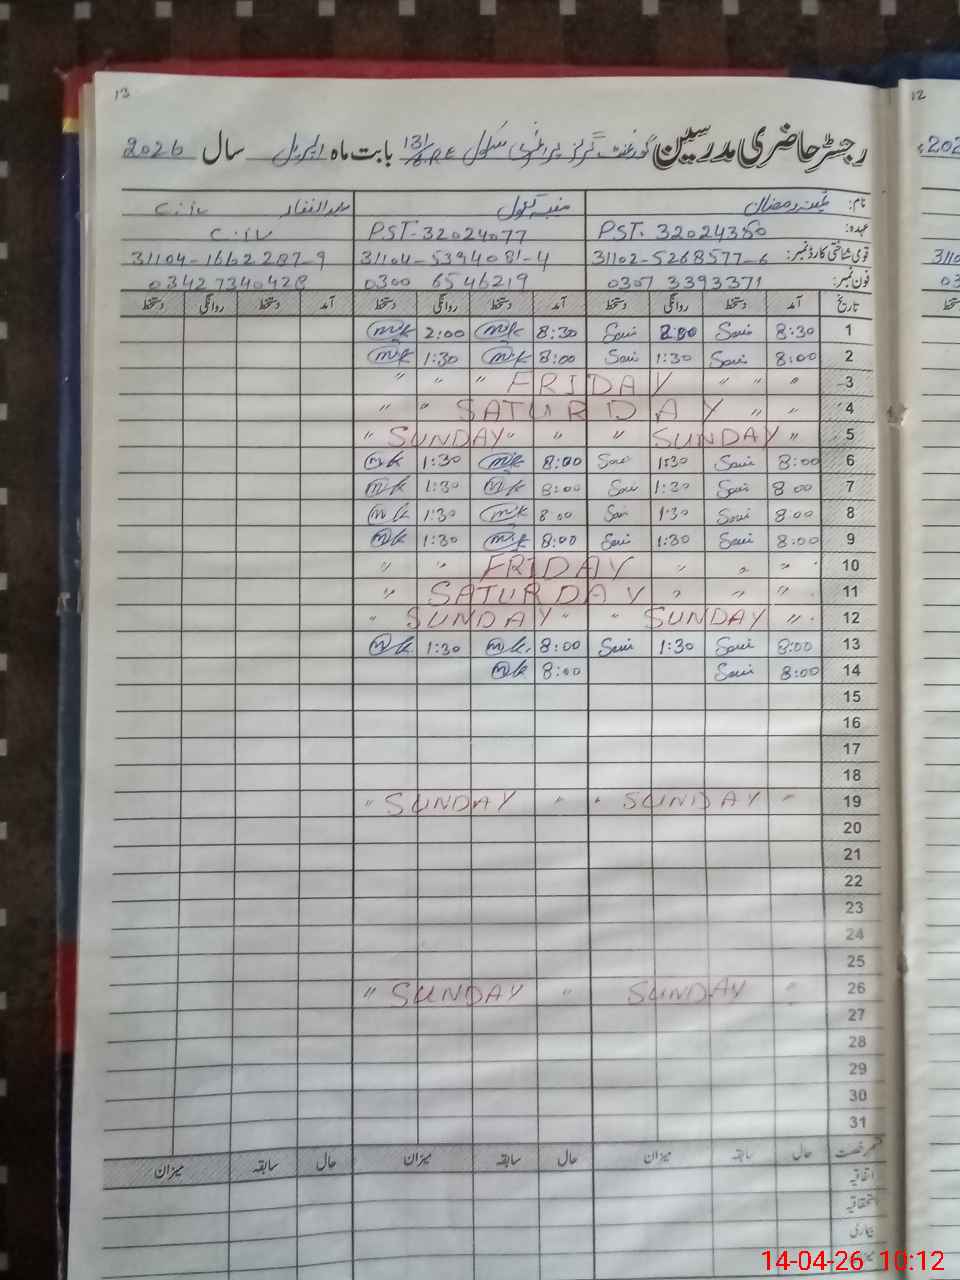 13
12
رجسٹر حاضری مدرسین گورنمنٹ گرلز پرائمری سکول 131/6RE بابت ماہ اپریل سال 2026
نام: رمضان
عبدالغفار
عہدہ: PST. 32024380 PST-32024077
قومی شناختی کارڈ نمبر: 31102-5268577-6 31104-5394081-4 31104-1662287-9
فون نمبر: 0307 3393371 0300 6546219 03427340428
تاریخ آمد دستخط روانگی دستخط آمد دستخط روانگی دستخط آمد دستخط روانگی دستخط
1 8:30 Sani 2:00 Sani 8:30 m/k 2:00 m/k
2 8:00 Sani 1:30 Sani 8:00 m/k 1:30 m/k
3 " " " FRIDAY " " "
4 " " SATURDAY " "
5 " SUNDAY " " " SUNDAY "
6 8:00 Sani 1:30 Sani 8:00 m/k 1:30 m/k
7 8 00 Sani 1:30 Sani 8:00 m/k 1:30 m/k
8 8:00 Sani 1:30 Sani 8 00 m/k 1:30 m/k
9 8:00 Sani 1:30 Sani 8:00 m/k 1:30 m/k
10 " " " FRIDAY " "
11 " " " SATURDAY "
12 " SUNDAY " " SUNDAY "
13 8:00 Sani 1:30 Sani 8:00 m/k 1:30 m/k
14 8:00 Sani 8:00 m/k
15
16
17
18
19 " SUNDAY " " SUNDAY "
20
21
22
23
24
25
26 " SUNDAY " SUNDAY "
27
28
29
30
31
قسم رخصت حال سابقہ میزان حال سابقہ میزان حال سابقہ میزان
اتفاقیہ
استحقاقیہ
بیماری
14-04-26 10:12